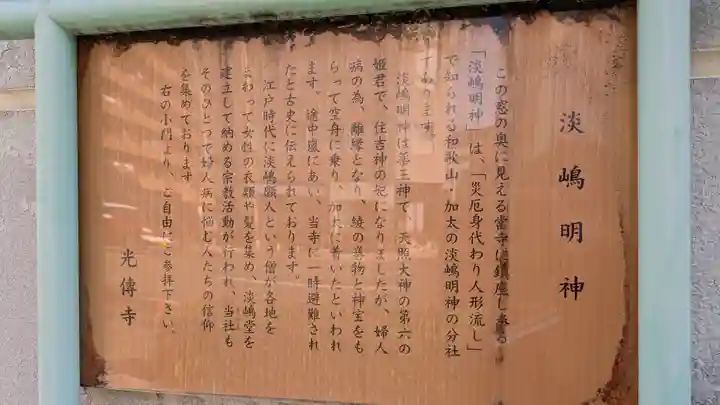 淡嶋明神
この窓の奥に見える當寺に鎮座しまする
「淡嶋明神」は、「災厄身代わり人形流し」
で知られる和歌山・加太の淡嶋明神の分社
であります。
淡嶋明神は薬王神で、天照大神の第六の
姫君で、住吉神の妃になりましたが、婦人
病の為、離縁となり、綾の巻物と神宝をも
らって空舟に乗り、加太に着いたといわれ
ます。途中嵐にあい、当寺に一時避難され
たと古史に伝えられております。
江戸時代に淡嶋願人という僧が各地を
まわって女性の衣類や髪を集め、淡嶋堂を
建立して納める宗教活動が行われ、当社も
そのひとつで婦人病に悩む人たちの信仰
を集めております
右の小門より、ご自由にご参拝下さい。
光傳寺